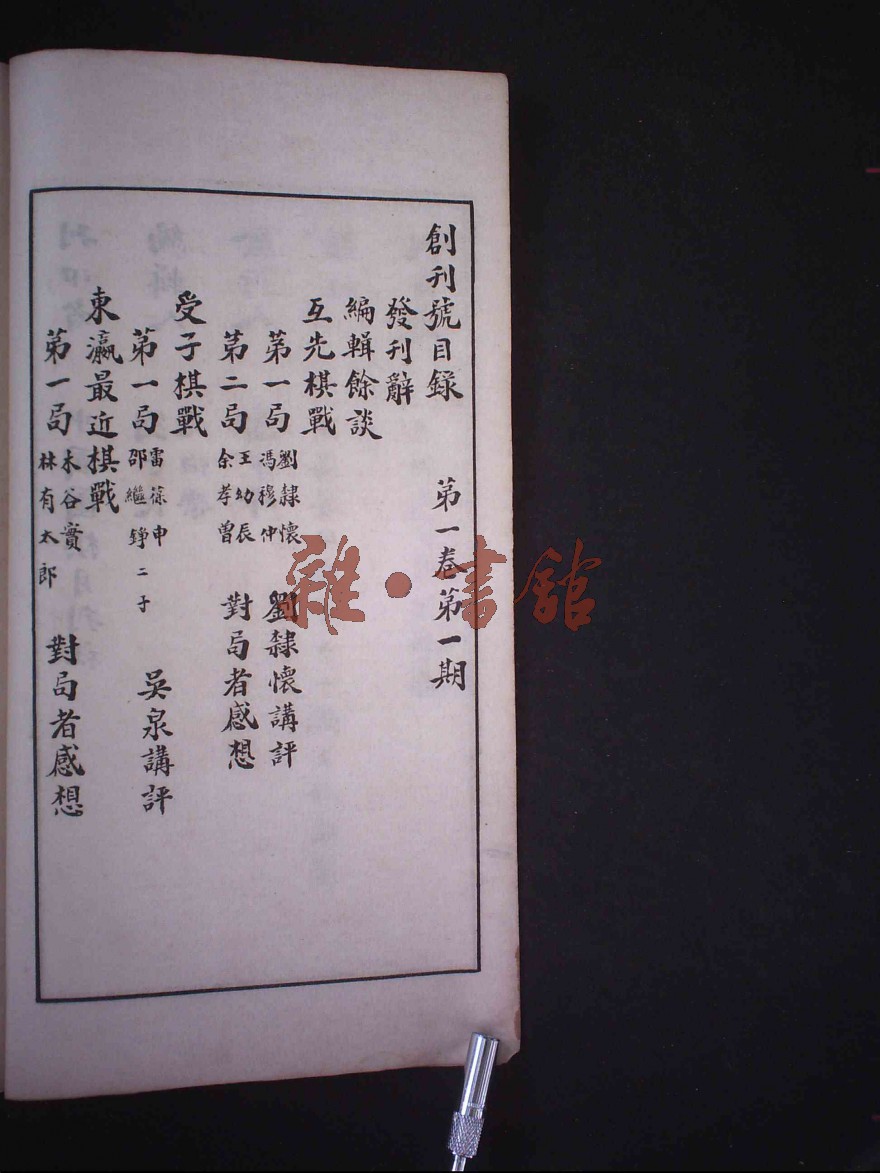 創刊號目錄 第一卷第一期
發刊辭
編輯餘談
互先棋戰
第一局 劉隸懷 馮穆仲 劉隸懷講評
第二局 王幼宸 余孝曾 對局者感想
受子棋戰
第一局 雷葆申 邵繼錚二子 吳泉講評
東瀛最近棋戰
第一局 木谷實 林有太郎 對局者感想
雜·書館